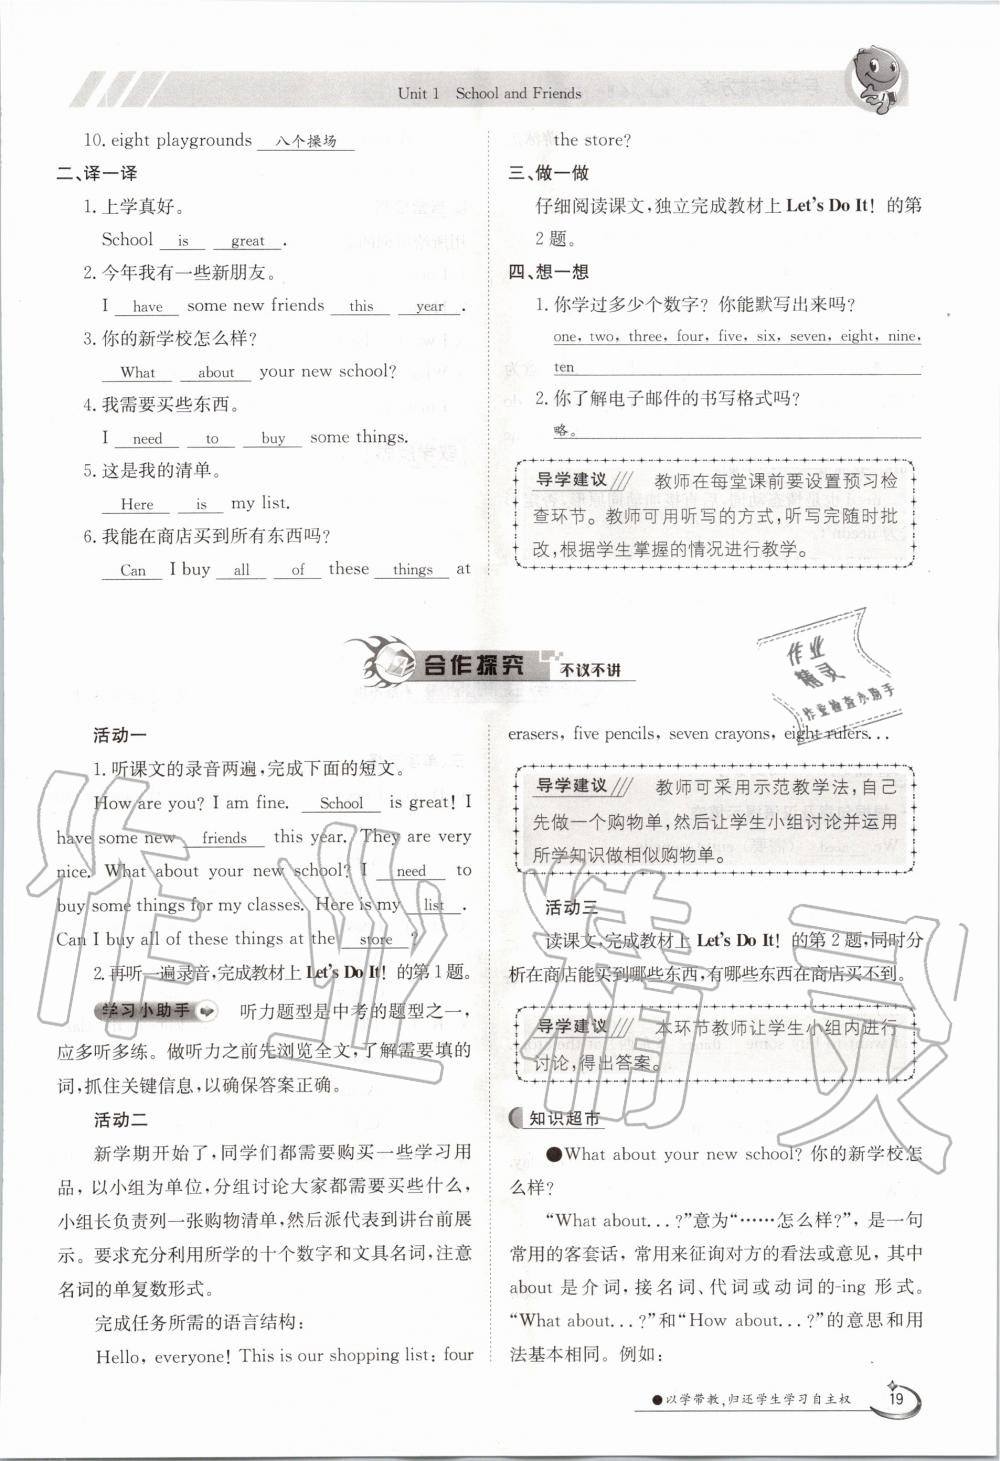 Unit 1 School and Friends
10. eight playgrounds 八个操场
二、译一译
1. 上学真好。
School is great .
2. 今年我有一些新朋友。
I have some new friends this year .
3. 你的新学校怎么样?
What about your new school?
4. 我需要买些东西。
I need to buy some things.
5. 这是我的清单。
Here is my list.
6. 我能在商店买到所有东西吗?
Can I buy all of these things at
the store?
三、做一做
仔细阅读课文,独立完成教材上 Let's Do It! 的第
2 题。
四、想一想
1. 你学过多少个数字? 你能默写出来吗?
one, two, three, four, five, six, seven, eight, nine,
ten
2. 你了解电子邮件的书写格式吗?
略。
导学建议 教师在每堂课前要设置预习检
查环节。教师可用听写的方式,听写完随时批
改,根据学生掌握的情况进行教学。
合作探究 不议不讲
活动一
1. 听课文的录音两遍,完成下面的短文。
How are you? I am fine. School is great! I
have some new friends this year. They are very
nice. What about your new school? I need to
buy some things for my classes. Here is my list .
Can I buy all of these things at the store ?
2. 再听一遍录音,完成教材上 Let's Do It! 的第 1 题。
学习小助手 听力题型是中考的题型之一,
应多听多练。做听力之前先浏览全文,了解需要填的
词,抓住关键信息,以确保答案正确。
活动二
新学期开始了,同学们都需要购买一些学习用
品,以小组为单位,分组讨论大家都需要买些什么,
小组长负责列一张购物清单,然后派代表到讲台前展
示。要求充分利用所学的十个数字和文具名词,注意
名词的单复数形式。
完成任务所需的语言结构:
Hello, everyone! This is our shopping list: four
erasers, five pencils, seven crayons, eight rulers...
导学建议 教师可采用示范教学法,自己
先做一个购物单,然后让学生小组讨论并运用
所学知识做相似购物单。
活动三
读课文,完成教材上 Let's Do It! 的第 2 题,同时分
析在商店能买到哪些东西,有哪些东西在商店买不到。
导学建议 本环节教师让学生小组内进行
讨论,得出答案。
知识超市
●What about your new school? 你的新学校怎
么样?
“What about...?”意为“……怎么样?”,是一句
常用的客套话,常用来征询对方的看法或意见,其中
about 是介词,接名词、代词或动词的-ing 形式。
“What about...?”和“How about...?”的意思和用
法基本相同。例如:
●以学带教,归还学生学习自主权
19
作业
精灵
作业检查小助手
作业精灵